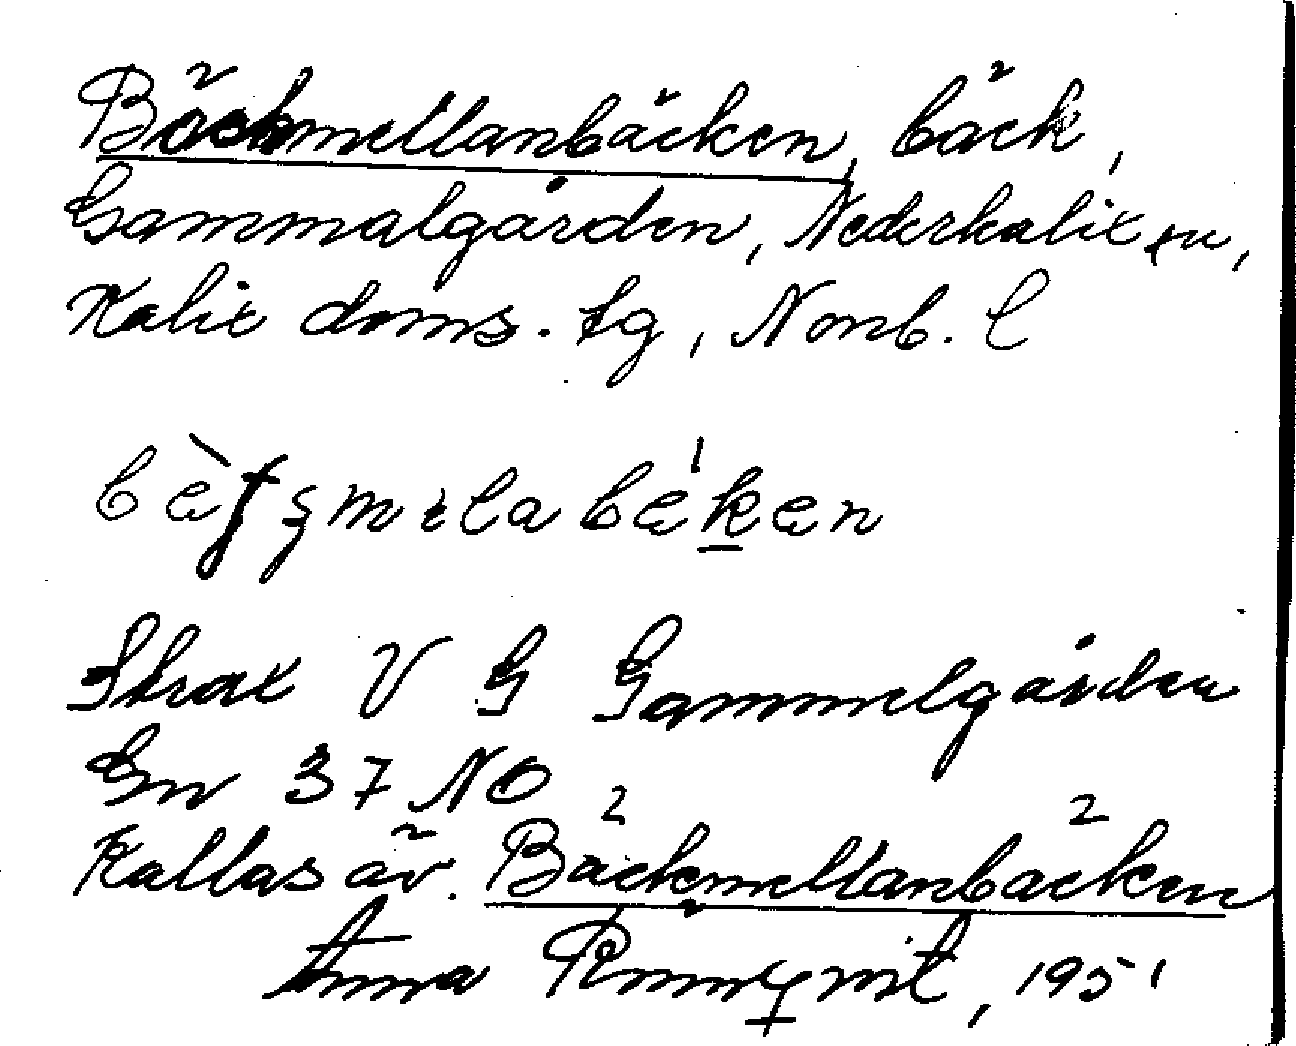 Bäckmellanbäcken, bäck,
Gammalgården, Nederkalix sn,
Kalix doms. tg, Norrb. l
Strax V G Gammelgården
Gn 37 NO
Kallas äv. Bäckmellanbäcken
Anna Rönnqvist, 1951